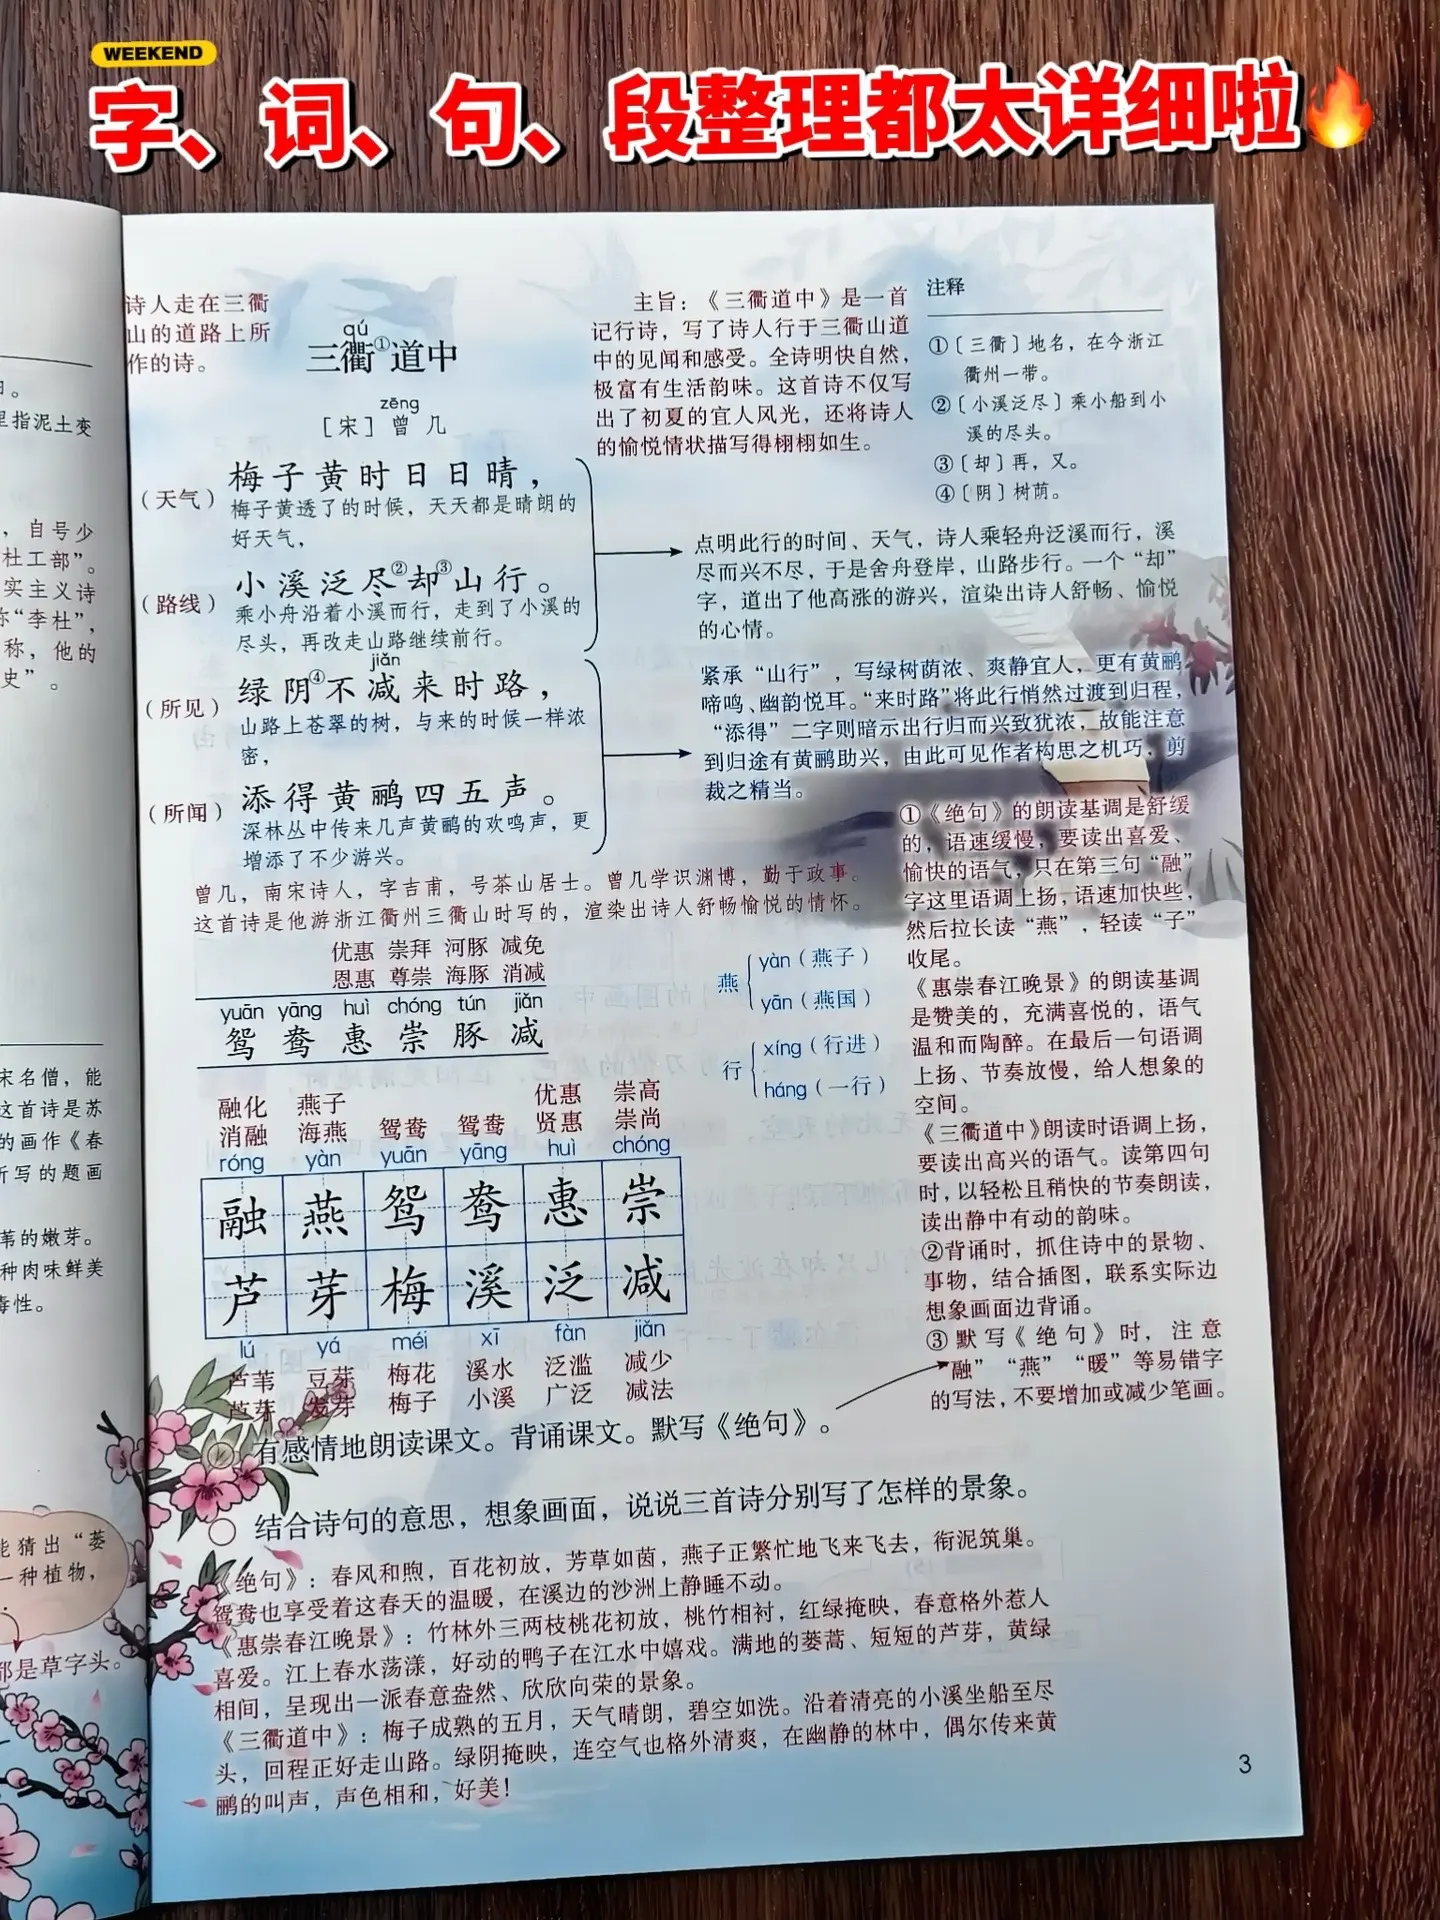 WEEKEND
字、词、句、段整理都太详细啦
里指泥土变
，自号少
杜工部”。
实主义诗
称“李杜”，
称，他的
史”。
宋名僧，能
这首诗是苏
的画作《春
所写的题画
苇的嫩芽。
种肉味鲜美
毒性。
能猜出“蒌
一种植物，
都是草字头。
诗人走在三衢
山的道路上所
作的诗。
qú
三衢①道中
zēng
［宋］曾 几
主旨：《三衢道中》是一首
记行诗，写了诗人行于三衢山道
中的见闻和感受。全诗明快自然，
极富有生活韵味。这首诗不仅写
出了初夏的宜人风光，还将诗人
的愉悦情状描写得栩栩如生。
注释
①〔三衢〕地名，在今浙江
衢州一带。
②〔小溪泛尽〕乘小船到小
溪的尽头。
③〔却〕再，又。
④〔阴〕树荫。
梅子黄时日日晴，
（天气）
梅子黄透了的时候，天天都是晴朗的
好天气，
小溪泛尽②却③山行。
（路线）
乘小舟沿着小溪而行，走到了小溪的
尽头，再改走山路继续前行。
jiǎn
绿阴④不减来时路，
（所见）
山路上苍翠的树，与来的时候一样浓
密，
添得黄鹂四五声。
（所闻）
深林丛中传来几声黄鹂的欢鸣声，更
增添了不少游兴。
点明此行的时间、天气，诗人乘轻舟泛溪而行，溪
尽而兴不尽，于是舍舟登岸，山路步行。一个“却”
字，道出了他高涨的游兴，渲染出诗人舒畅、愉悦
的心情。
紧承“山行”，写绿树荫浓、爽静宜人，更有黄鹂
啼鸣、幽韵悦耳。“来时路”将此行悄然过渡到归程，
“添得”二字则暗示出行归而兴致犹浓，故能注意
到归途有黄鹂助兴，由此可见作者构思之机巧，剪
裁之精当。
曾几，南宋诗人，字吉甫，号茶山居士。曾几学识渊博，勤于政事。
这首诗是他游浙江衢州三衢山时写的，渲染出诗人舒畅愉悦的情怀。
优惠 崇拜 河豚 减免
恩惠 尊崇 海豚 消减
yuān yāng huì chóng tún jiǎn
鸳 鸯 惠 崇 豚 减
燕
yàn（燕子）
yān（燕国）
行
xíng（行进）
háng（一行）
融化 燕子 优惠 崇高
消融 海燕 鸳鸯 鸳鸯 贤惠 崇尚
róng yàn yuān yāng huì chóng
融 燕 鸳 鸯 惠 崇
芦 芽 梅 溪 泛 减
lú yá méi xī fàn jiǎn
芦苇 豆芽 梅花 溪水 泛滥 减少
芦芽 发芽 梅子 小溪 广泛 减法
①《绝句》的朗读基调是舒缓
的，语速缓慢，要读出喜爱、
愉快的语气，只在第三句“融”
字这里语调上扬，语速加快些，
然后拉长读“燕”，轻读“子”
收尾。
《惠崇春江晚景》的朗读基调
是赞美的，充满喜悦的，语气
温和而陶醉。在最后一句语调
上扬、节奏放慢，给人想象的
空间。
《三衢道中》朗读时语调上扬，
要读出高兴的语气。读第四句
时，以轻松且稍快的节奏朗读，
读出静中有动的韵味。
②背诵时，抓住诗中的景物、
事物，结合插图，联系实际边
想象画面边背诵。
③默写《绝句》时，注意
“融”“燕”“暖”等易错字
的写法，不要增加或减少笔画。
有感情地朗读课文。背诵课文。默写《绝句》。
结合诗句的意思，想象画面，说说三首诗分别写了怎样的景象。
《绝句》：春风和煦，百花初放，芳草如茵，燕子正繁忙地飞来飞去，衔泥筑巢。
鸳鸯也享受着这春天的温暖，在溪边的沙洲上静睡不动。
《惠崇春江晚景》：竹林外三两枝桃花初放，桃竹相衬，红绿掩映，春意格外惹人
喜爱。江上春水荡漾，好动的鸭子在江水中嬉戏。满地的蒌蒿、短短的芦芽，黄绿
相间，呈现出一派春意盎然、欣欣向荣的景象。
《三衢道中》：梅子成熟的五月，天气晴朗，碧空如洗。沿着清亮的小溪坐船至尽
头，回程正好走山路。绿阴掩映，连空气也格外清爽，在幽静的林中，偶尔传来黄
鹂的叫声，声色相和，好美！
3